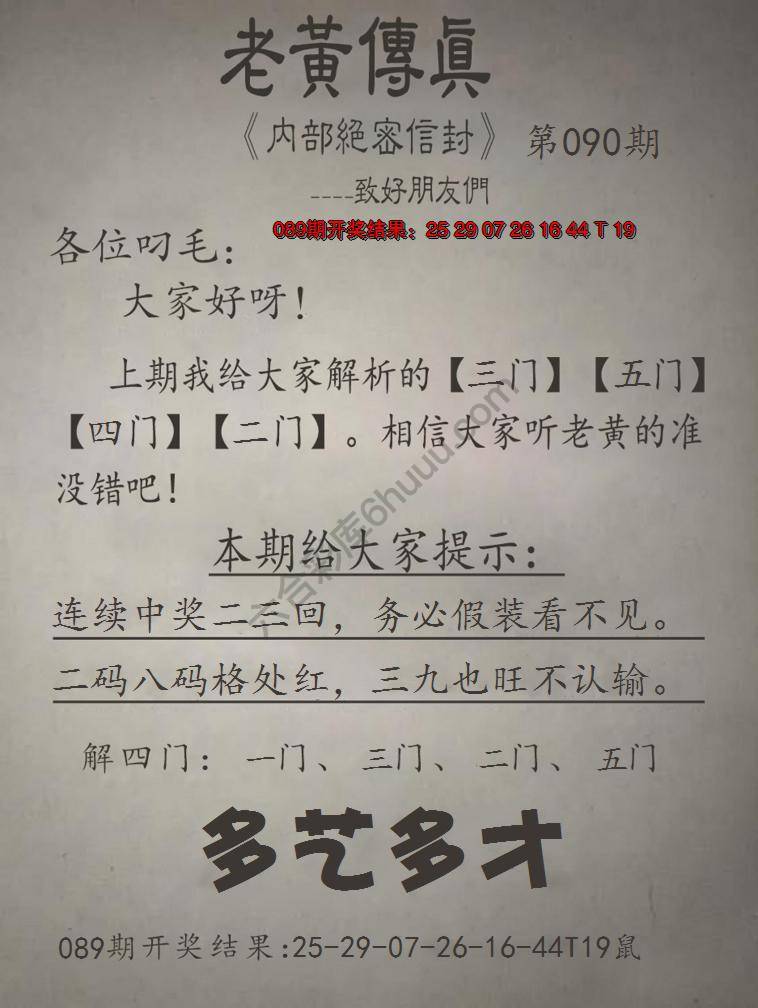 老黃傳眞
《内部絕密信封》 第090期
----致好朋友們
089期开奖结果：25 29 07 26 16 44 T 19
各位叼毛：
大家好呀！
上期我给大家解析的【三门】【五门】
【四门】【二门】。相信大家听老黄的准
没错吧！
本期给大家提示：
连续中奖二三回，务必假装看不见。
二码八码格处红，三九也旺不认输。
解四门： 一门、 三门、 二门、 五门
多艺多才
089期开奖结果:25-29-07-26-16-44T19鼠
六合彩库6huuu.com